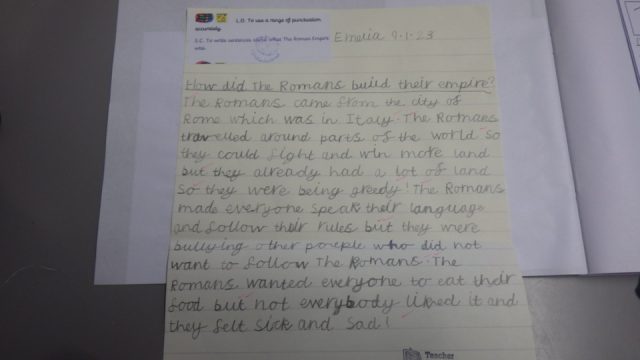 L.O. To use a range of punctuation
accurately.
S.C. To write sentences about what The Roman Empire
was.
Emelia 9.1.23
How did The Romans build their empire?
The Romans came from the city of
Rome which was in Italy. The Romans
travelled around parts of the world so
they could fight and win more land
but they already had a lot of land
so they were being greedy! The Romans
made everyone speak their language
and follow their rules but they were
bullying other poeple who did not
want to follow The Romans. The
Romans wanted everyone to eat their
food but not everybody liked it and
they felt sick and sad!
Teacher